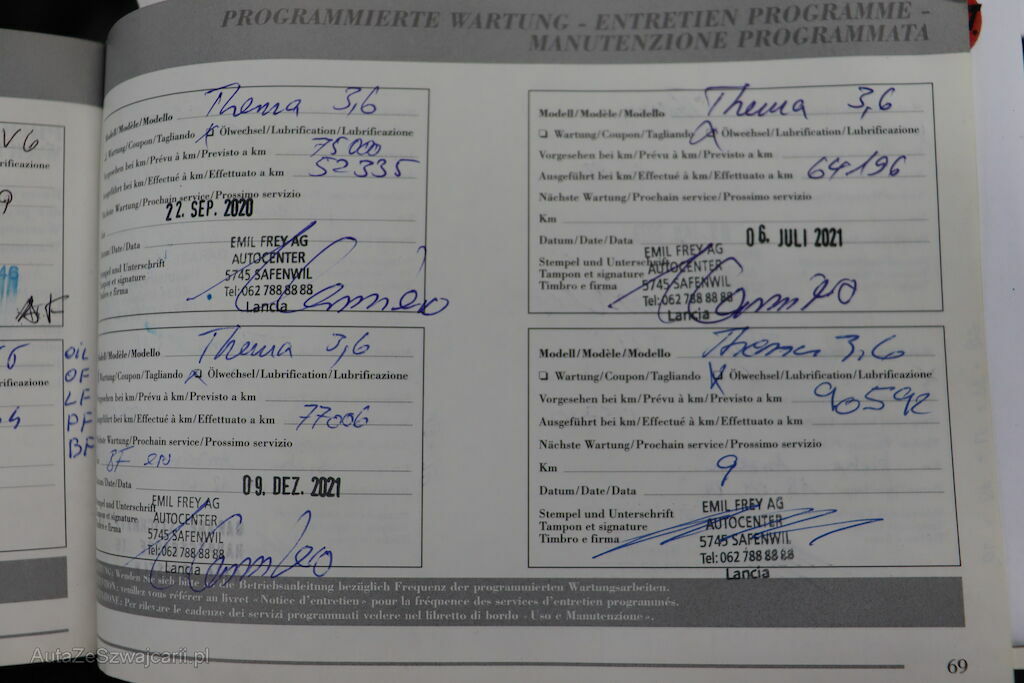 PROGRAMMIERTE WARTUNG - ENTRETIEN PROGRAMME -
MANUTENZIONE PROGRAMMATA
V6
rificazione
9
AF
rificazione
OIL
OF
LF
PF
BF
Modell/Modèle/Modello Thema 3,6
Wartung/Coupon/Tagliando Ölwechsel/Lubrification/Lubrificazione
Vorgesehen bei km/Prévu à km/Previsto a km 75000
Ausgeführt bei km/Effectué à km/Effettuato a km 52335
Nächste Wartung/Prochain service/Prossimo servizio
22. SEP. 2020
Datum/Date/Data
Stempel und Unterschrift
Tampon et signature
Timbro e firma
EMIL FREY AG
AUTOCENTER
5745 SAFENWIL
Tel: 062 788 88 88
Lancia
Modell/Modèle/Modello Thema 3,6
❏ Wartung/Coupon/Tagliando Ölwechsel/Lubrification/Lubrificazione
Vorgesehen bei km/Prévu à km/Previsto a km
Ausgeführt bei km/Effectué à km/Effettuato a km 64196
Nächste Wartung/Prochain service/Prossimo servizio
Km
Datum/Date/Data 06. JULI 2021
Stempel und Unterschrift
Tampon et signature
Timbro e firma
EMIL FREY AG
AUTOCENTER
5745 SAFENWIL
Tel: 062 788 88 88
Lancia
Modell/Modèle/Modello Thema 3,6
Wartung/Coupon/Tagliando ❏ Ölwechsel/Lubrification/Lubrificazione
Vorgesehen bei km/Prévu à km/Previsto a km
Ausgeführt bei km/Effectué à km/Effettuato a km 77006
Nächste Wartung/Prochain service/Prossimo servizio
BF
Datum/Date/Data 09. DEZ. 2021
Stempel und Unterschrift
Tampon et signature
Timbro e firma
EMIL FREY AG
AUTOCENTER
5745 SAFENWIL
Tel: 062 788 88 88
Lancia
Modell/Modèle/Modello Thema 3,6
❏ Wartung/Coupon/Tagliando ❏ Ölwechsel/Lubrification/Lubrificazione
Vorgesehen bei km/Prévu à km/Previsto a km 90592
Ausgeführt bei km/Effectué à km/Effettuato a km
Nächste Wartung/Prochain service/Prossimo servizio
Km 9
Datum/Date/Data
Stempel und Unterschrift
Tampon et signature
Timbro e firma
EMIL FREY AG
AUTOCENTER
5745 SAFENWIL
Tel: 062 788 88 88
Lancia
Wenden Sie sich bitte an die Betriebsanleitung bezüglich Frequenz der programmierten Wartungsarbeiten.
veuillez vous référer au livret «Notice d'entretien» pour la fréquence des services d'entretien programmés.
Per rilevare le cadenze dei servizi programmati vedere nel libretto di bordo «Uso e Manutenzione».
69
AutaZeSzwajcarii.pl